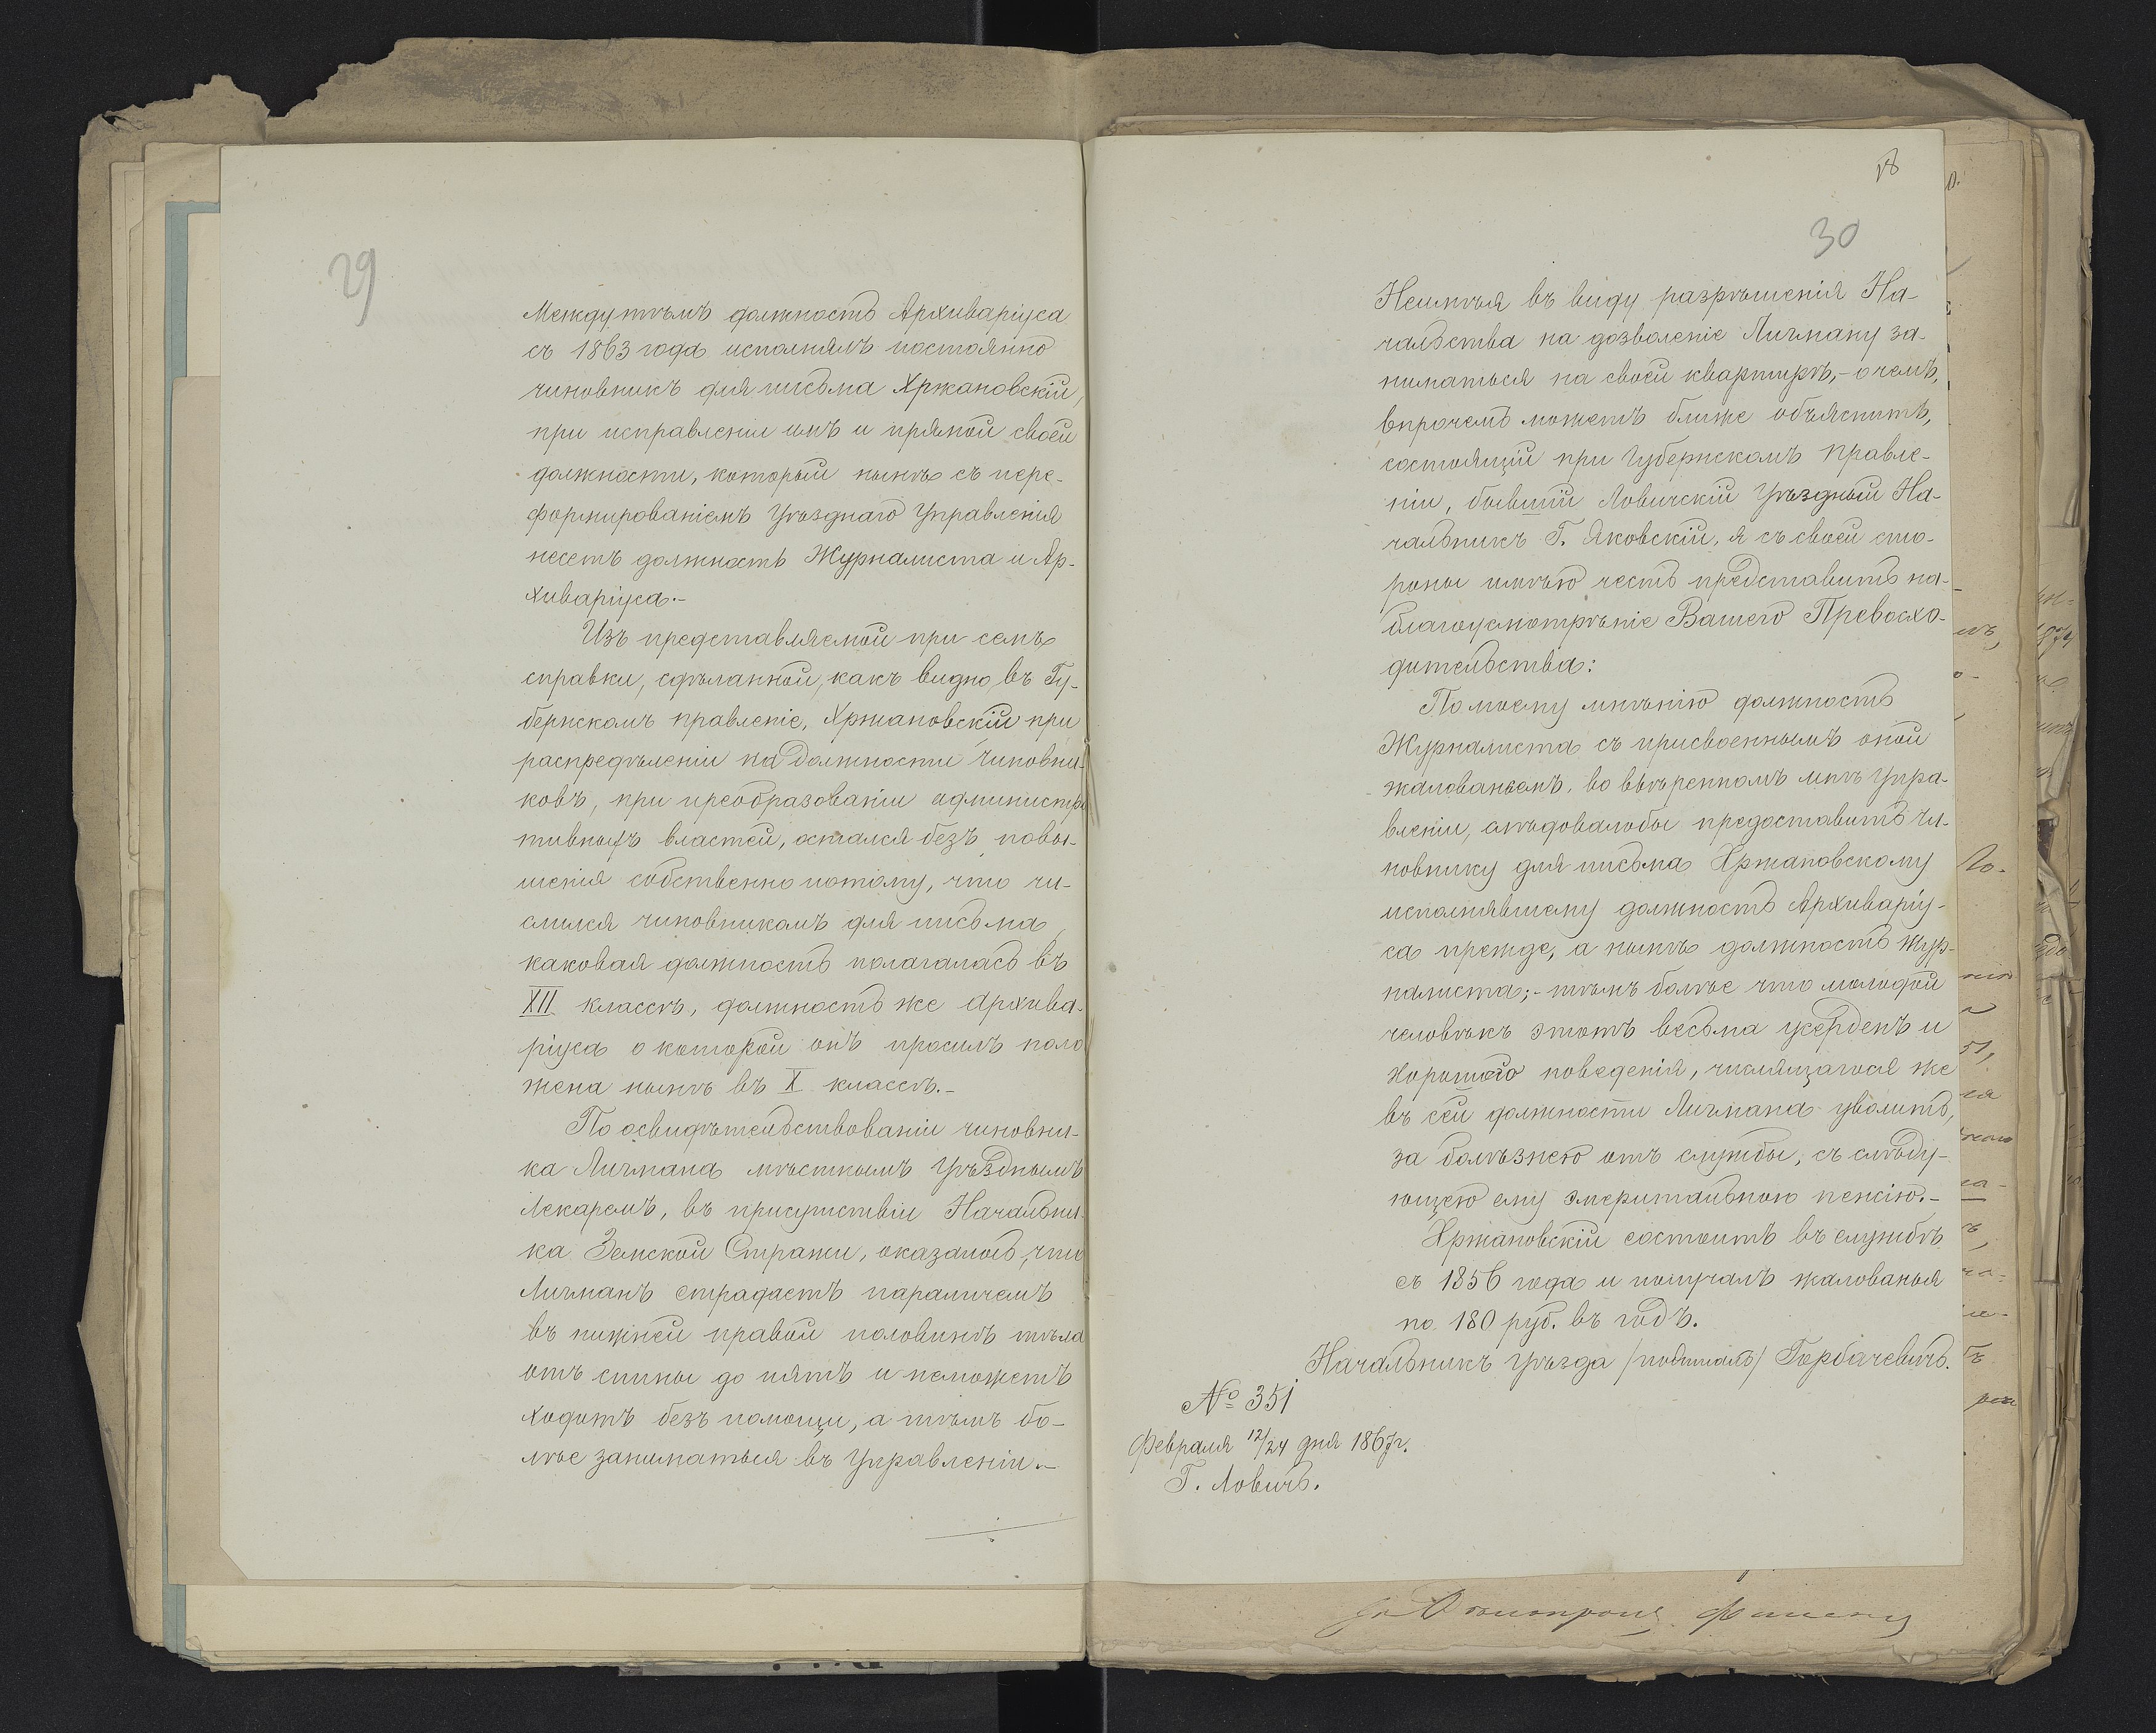 29
Между тѣмъ должность Архиваріуса
съ 1863 года исполнялъ постоянно
чиновникъ для письма Хржановскій,
при исправленіи имъ и прямой своей
должности, который нынѣ съ пере-
формированіемъ Уѣзднаго Управленія
несетъ должность Журналиста и Ар-
хиваріуса.-
Изъ представляемой при семъ
справки, сдѣланной, какъ видно, въ Гу-
бернскомъ правленіе, Хржановскій при
распредѣленіи на должности чиновни-
ковъ, при преобразованіи администра
тивныхъ властей, остался безъ повы-
шенія собственно потому, что чи-
слился чиновникомъ для письма,
каковая должность полагалась въ
XII классѣ, должность же Архива-
ріуса о которой онъ просилъ поло
жена нынѣ въ X классѣ.-
По освидѣтельствованіи чиновни-
ка Личмана мѣстнымъ Уѣзднымъ
Лекаремъ, въ присутствіи Начальни-
ка Земской Стражи, оказалось, что
Личманъ страдаетъ параличемъ
въ нижней правой половинѣ тѣла
отъ спины до пятъ и неможетъ
ходить безъ помощи, а тѣмъ бо-
лѣе заниматься въ Управленіи.-
18
30
Неимѣя въ виду разрѣшенія На-
чальства на дозволеніе Личману за-
ниматься на своей квартирѣ,- о чемъ,
впрочемъ можетъ ближе объяснить,
состоящій при Губернскомъ Правле-
ніи, бывшій Ловичскій Уѣздный На-
чальникъ Г. Яковскій, я съ своей сто-
роны имѣю честь представить на-
благоусмотрѣніе Вашего Превосхо-
дительства:
По моему мнѣнію должность
Журналиста съ присвоеннымъ оной
жалованьемъ, во ввѣренномъ мнѣ Упра-
вленіи, слѣдовалобы предоставить чи-
новнику для письма Хржановскому
исполнявшему должность Архиваріу-
са прежде, а нынѣ должность Жур-
налиста;- тѣмъ болѣе что молодой
человѣкъ этотъ весьма усерденъ и
хорошего поведенія, числящагося же
въ сей должности Личмана уволить,
за болѣзнею отъ службы, съ слѣду-
ющею ему эмеритальною пенсію.-
Хржановскій состоитъ въ службѣ
съ 1856 года и получалъ жалованья
по 180 руб. въ годъ.
Начальникъ Уѣзда /подписалъ/ Горбачевичъ.
№ 351
Февраля 12/24 дня 1867г.
Г. Ловичъ.